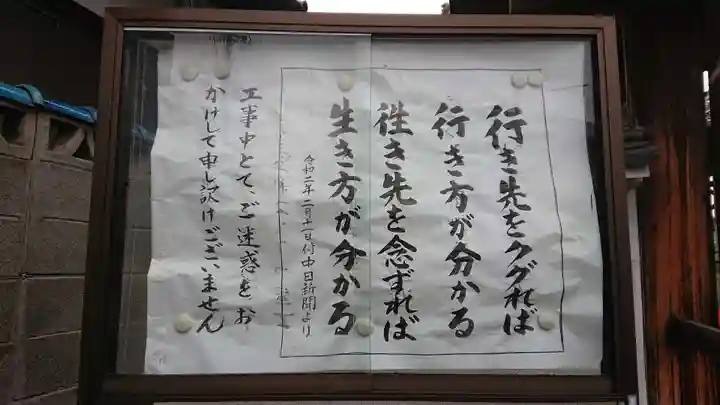 行き先をググれば
行き方が分かる
往き先を念ずれば
生き方が分かる
令和二年二月十一日付中日新聞より
工事中とて、ご迷惑をお
かけして申し訳けございません